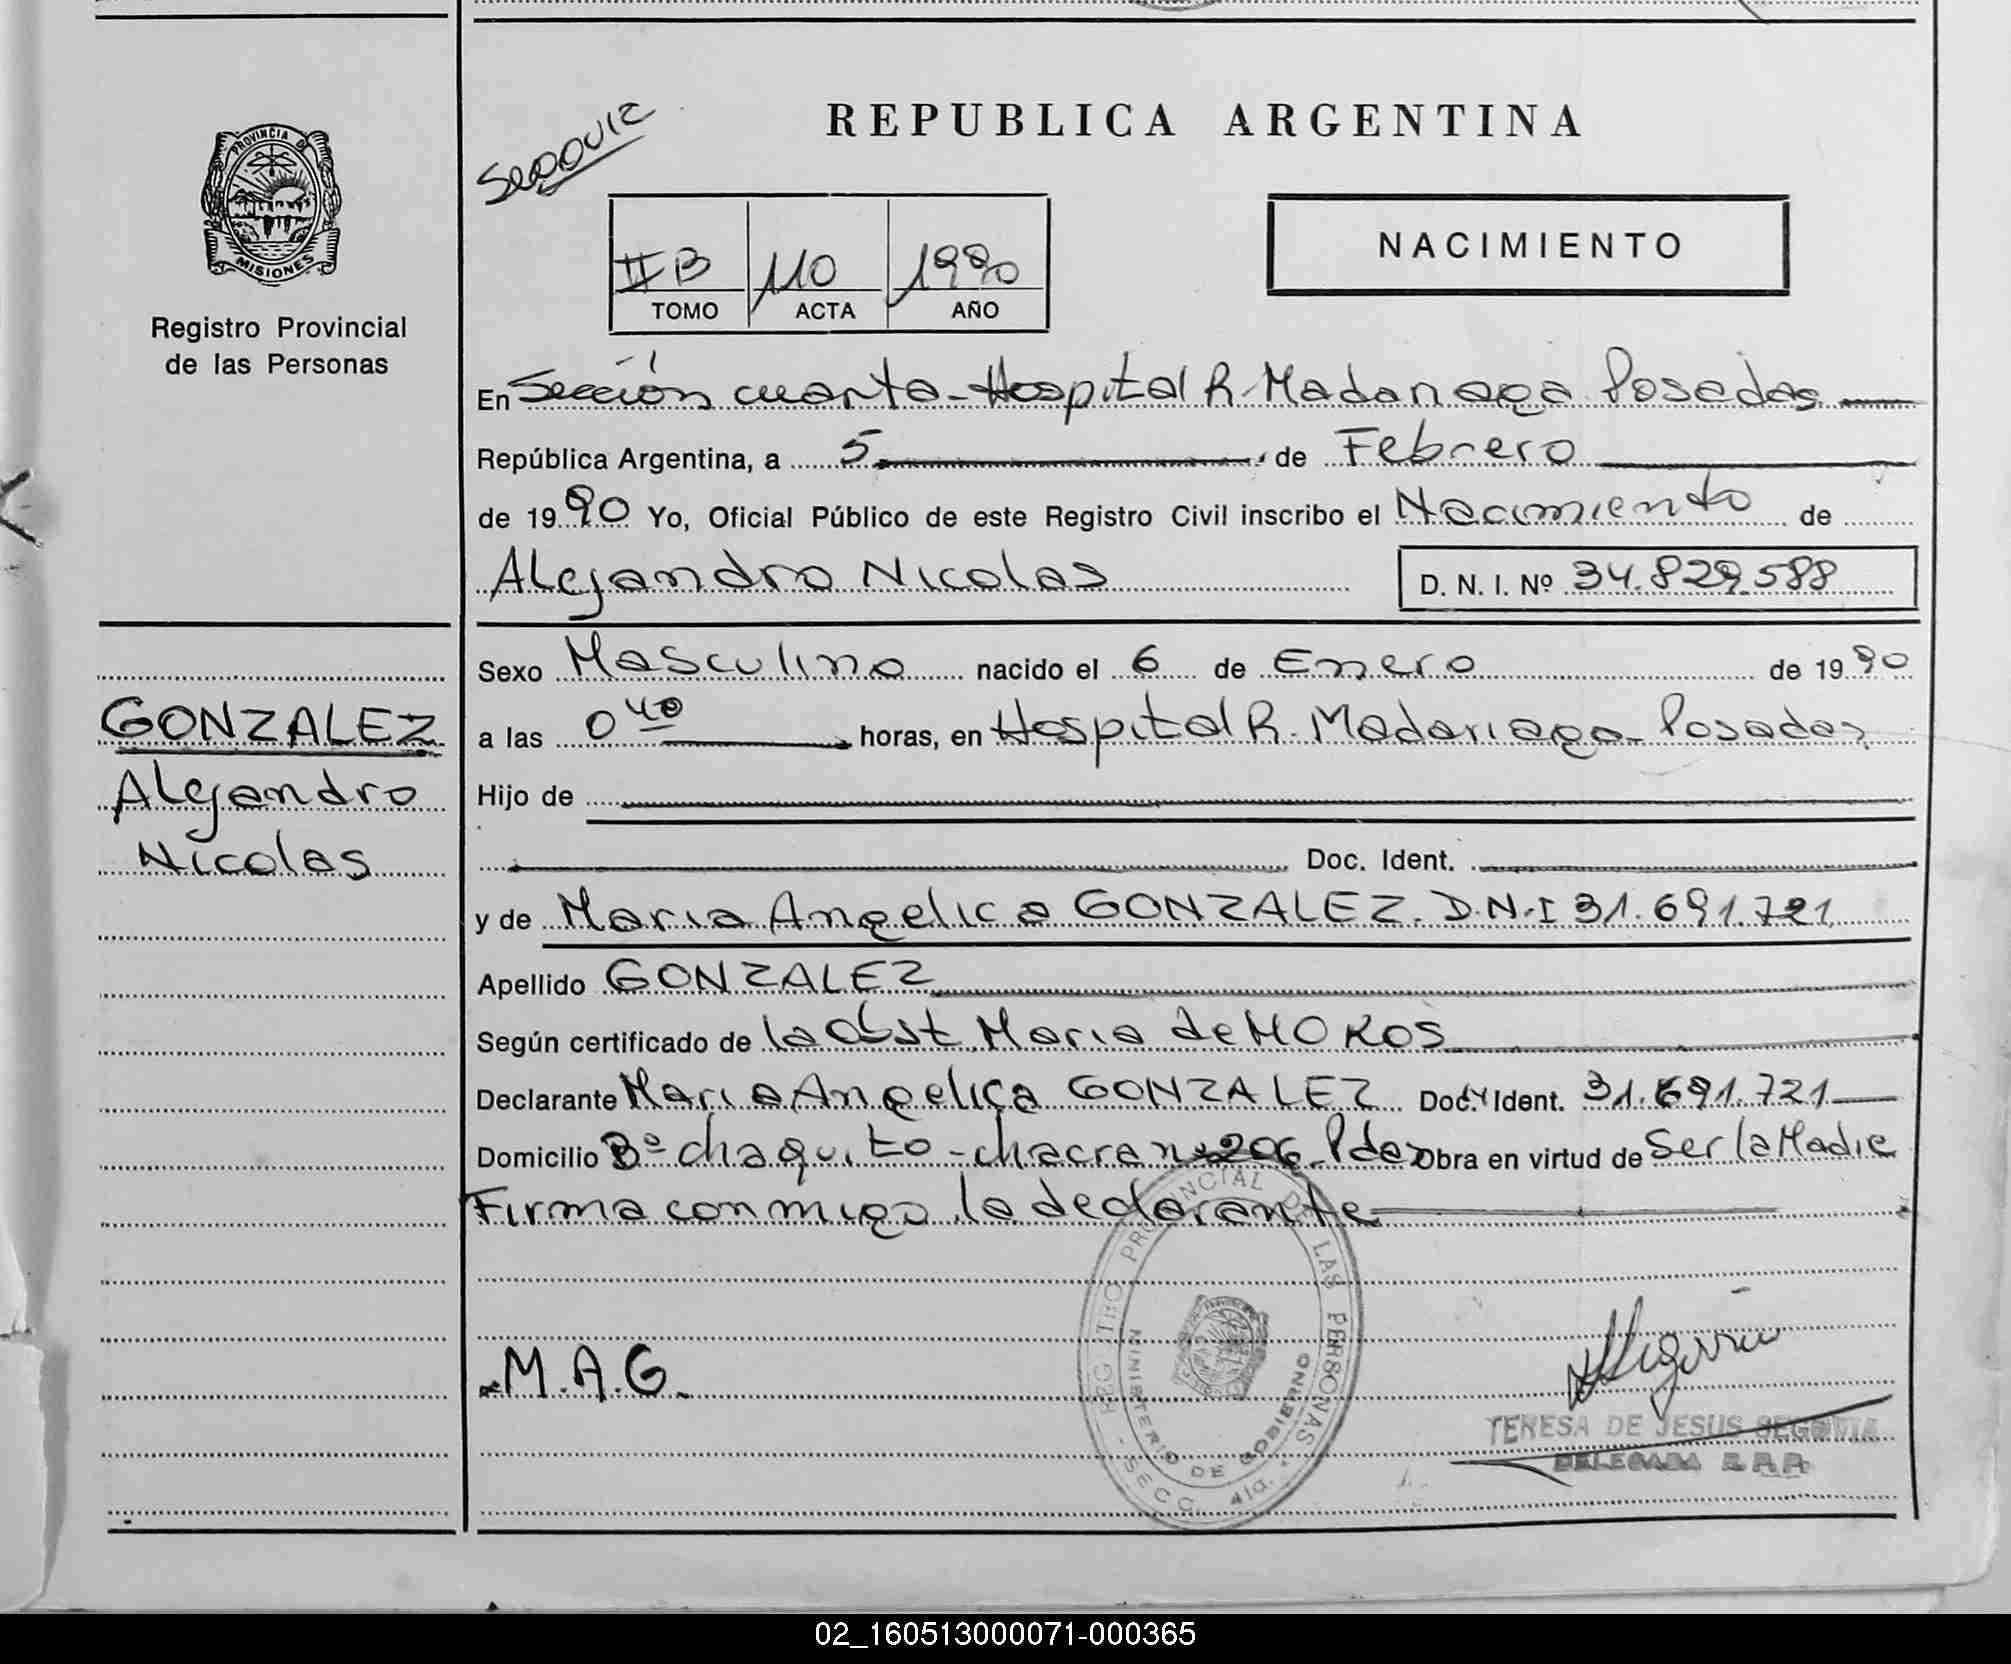 REPUBLICA ARGENTINA
PROVINCIA D
MISIONES
Registro Provincial
de las Personas
II B 110 1990
TOMO ACTA AÑO
NACIMIENTO
En Sección cuarta - Hospital R. Madariaga Posadas
República Argentina, a 5 de Febrero
de 1990 Yo, Oficial Público de este Registro Civil inscribo el Nacimiento de
Alejandro Nicolas D. N. I. Nº 34.829.588
Sexo Masculino nacido el 6 de Enero de 1990
a las 0 40 horas, en Hospital R. Madariaga - Posadas
Hijo de
Doc. Ident.
y de Maria Angelica GONZALEZ. D.N.I 31.691.721
Apellido GONZALEZ
Según certificado de la Obst. Maria de MOROS
Declarante Maria Angelica GONZALEZ Doc. Ident. 31.691.721
Domicilio Bº chaquito - chacra nº 206 - Pdas Obra en virtud de Ser la Madre
Firma conmigo la declarante
GONZALEZ
Alejandro
Nicolas
M.A.G.
REGISTRO PROVINCIAL DE LAS PERSONAS
MINISTERIO DE GOBIERNO
- SECC. 4ta. -
TERESA DE JESUS SEGOVIA
DELEGADA R.P.P.
02_160513000071-000365